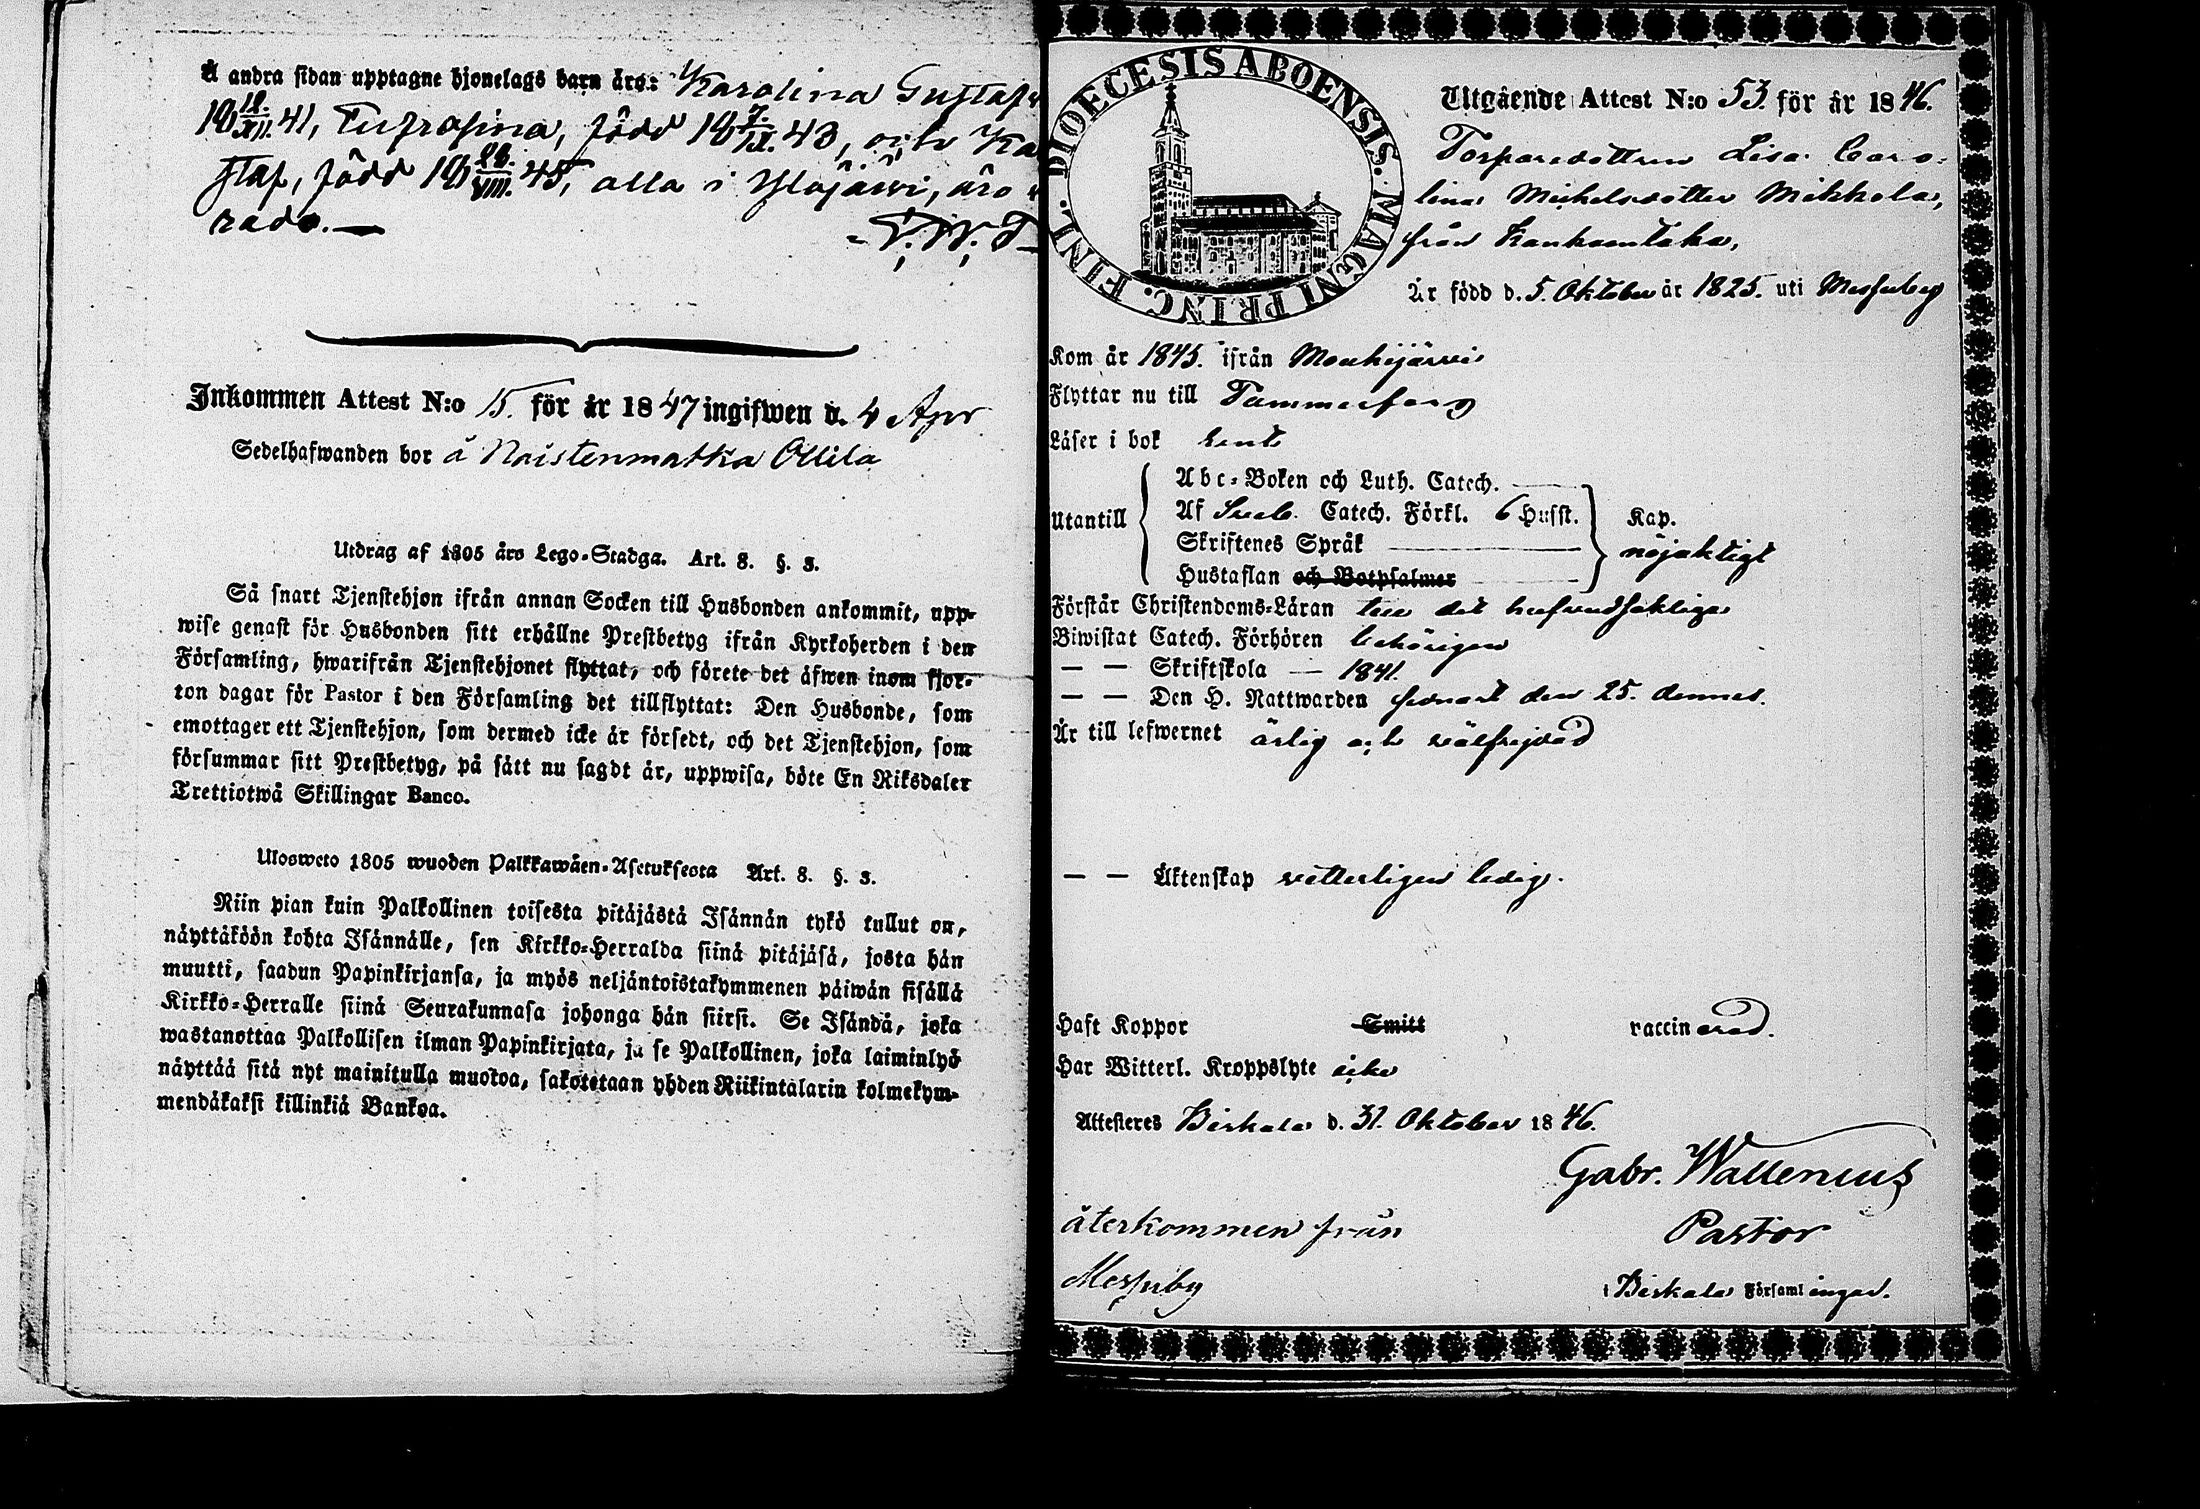 Å andra sidan upptagne hjonelags barn äro: Karolina Gustafv
18 12/XII. 41, Eufrosina, född 18 7/IX. 43, och Ka
staf, född 18 26/VIII. 45, alla i Ylöjärvi, äro
rade. —
Inkommen Attest N:o 15. för år 1847 ingifwen d. 4 Apr
Sedelhafwanden bor å Naistenmatka Ollila
Utdrag af 1805 års Lego-Stadga. Art. 8. §. 3.
Så snart Tjenstehjon ifrån annan Socken till Husbonden ankommit, upp-
wise genast för Husbonden sitt erhållne Prestbetyg ifrån Kyrkoherden i den
Församling, hwarifrån Tjenstehjonet flyttat, och förete det äfwen inom fjor-
ton dagar för Pastor i den Församling det tillflyttat: Den Husbonde, som
emottager ett Tjenstehjon, som dermed icke är försedt, och det Tjenstehjon, som
försummar sitt Prestbetyg, på sätt nu sagdt är, uppwisa, böte En Riksdaler
Trettiotwå Skillingar Banco.
Ulosweto 1805 wuoden Palkkawäen-Asetuksesta Art. 8. §. 3.
Niin pian kuin Palkollinen toisesta pitäjästä Isännän tykö tullut on,
näyttäköön kohta Isännälle, sen Kirkko-Herralda siinä pitäjäsä, josta hän
muutti, saadun Papinkirjansa, ja myös neljäntoistakymmenen päiwän sisällä
Kirkko-Herralle siinä Seurakunnasa johonga hän siirsi. Se Isändä, joka
wastanottaa Palkollisen ilman Papinkirjata, ja se Palkollinen, joka laiminlyö
näyttää sitä nyt mainitulla muotoa, sakotetaan yhden Riikintalarin kolmekym-
mendäkaksi killinkiä Bankoa.
DIOECESIS ABOENSIS. MAGNI PRINC. FINL.
Utgående Attest N:o 53. för år 1846.
Torparedottren Lisa Caro-
lina Michelsdotter Mikkola,
från Kankaantaka,
Är född d. 5. Oktober år 1825. uti Messuby
Kom år 1845. ifrån Mouhijärvi
Flyttar nu till Tammerfors
Läser i bok rent
Utantill
Abc-Boken och Luth. Catech.
Af Sveb. Catech. Förkl. 6 Husst.
Skriftenes Språk
Hustaflan och Botpsalmer
Kap.
nöjaktigt
Förstår Christendoms-Läran till det hufvudsakliga
Biwistat Catech. Förhören behörigen
— — Skriftskola — 1841.
— — Den H. Nattwarden senast den 25. dennes.
Är till lefwernet ärlig och välfrejdad
— — Äktenskap vetterligen ledig.
Haft Koppor Smitt vaccinerad.
Har Witterl. Kroppslyte icke
Attesteres Birkala d. 31. Oktober 1846.
Gabr. Wallenius
Pastor
i Birkala Församlingar.
återkommen från
Messuby